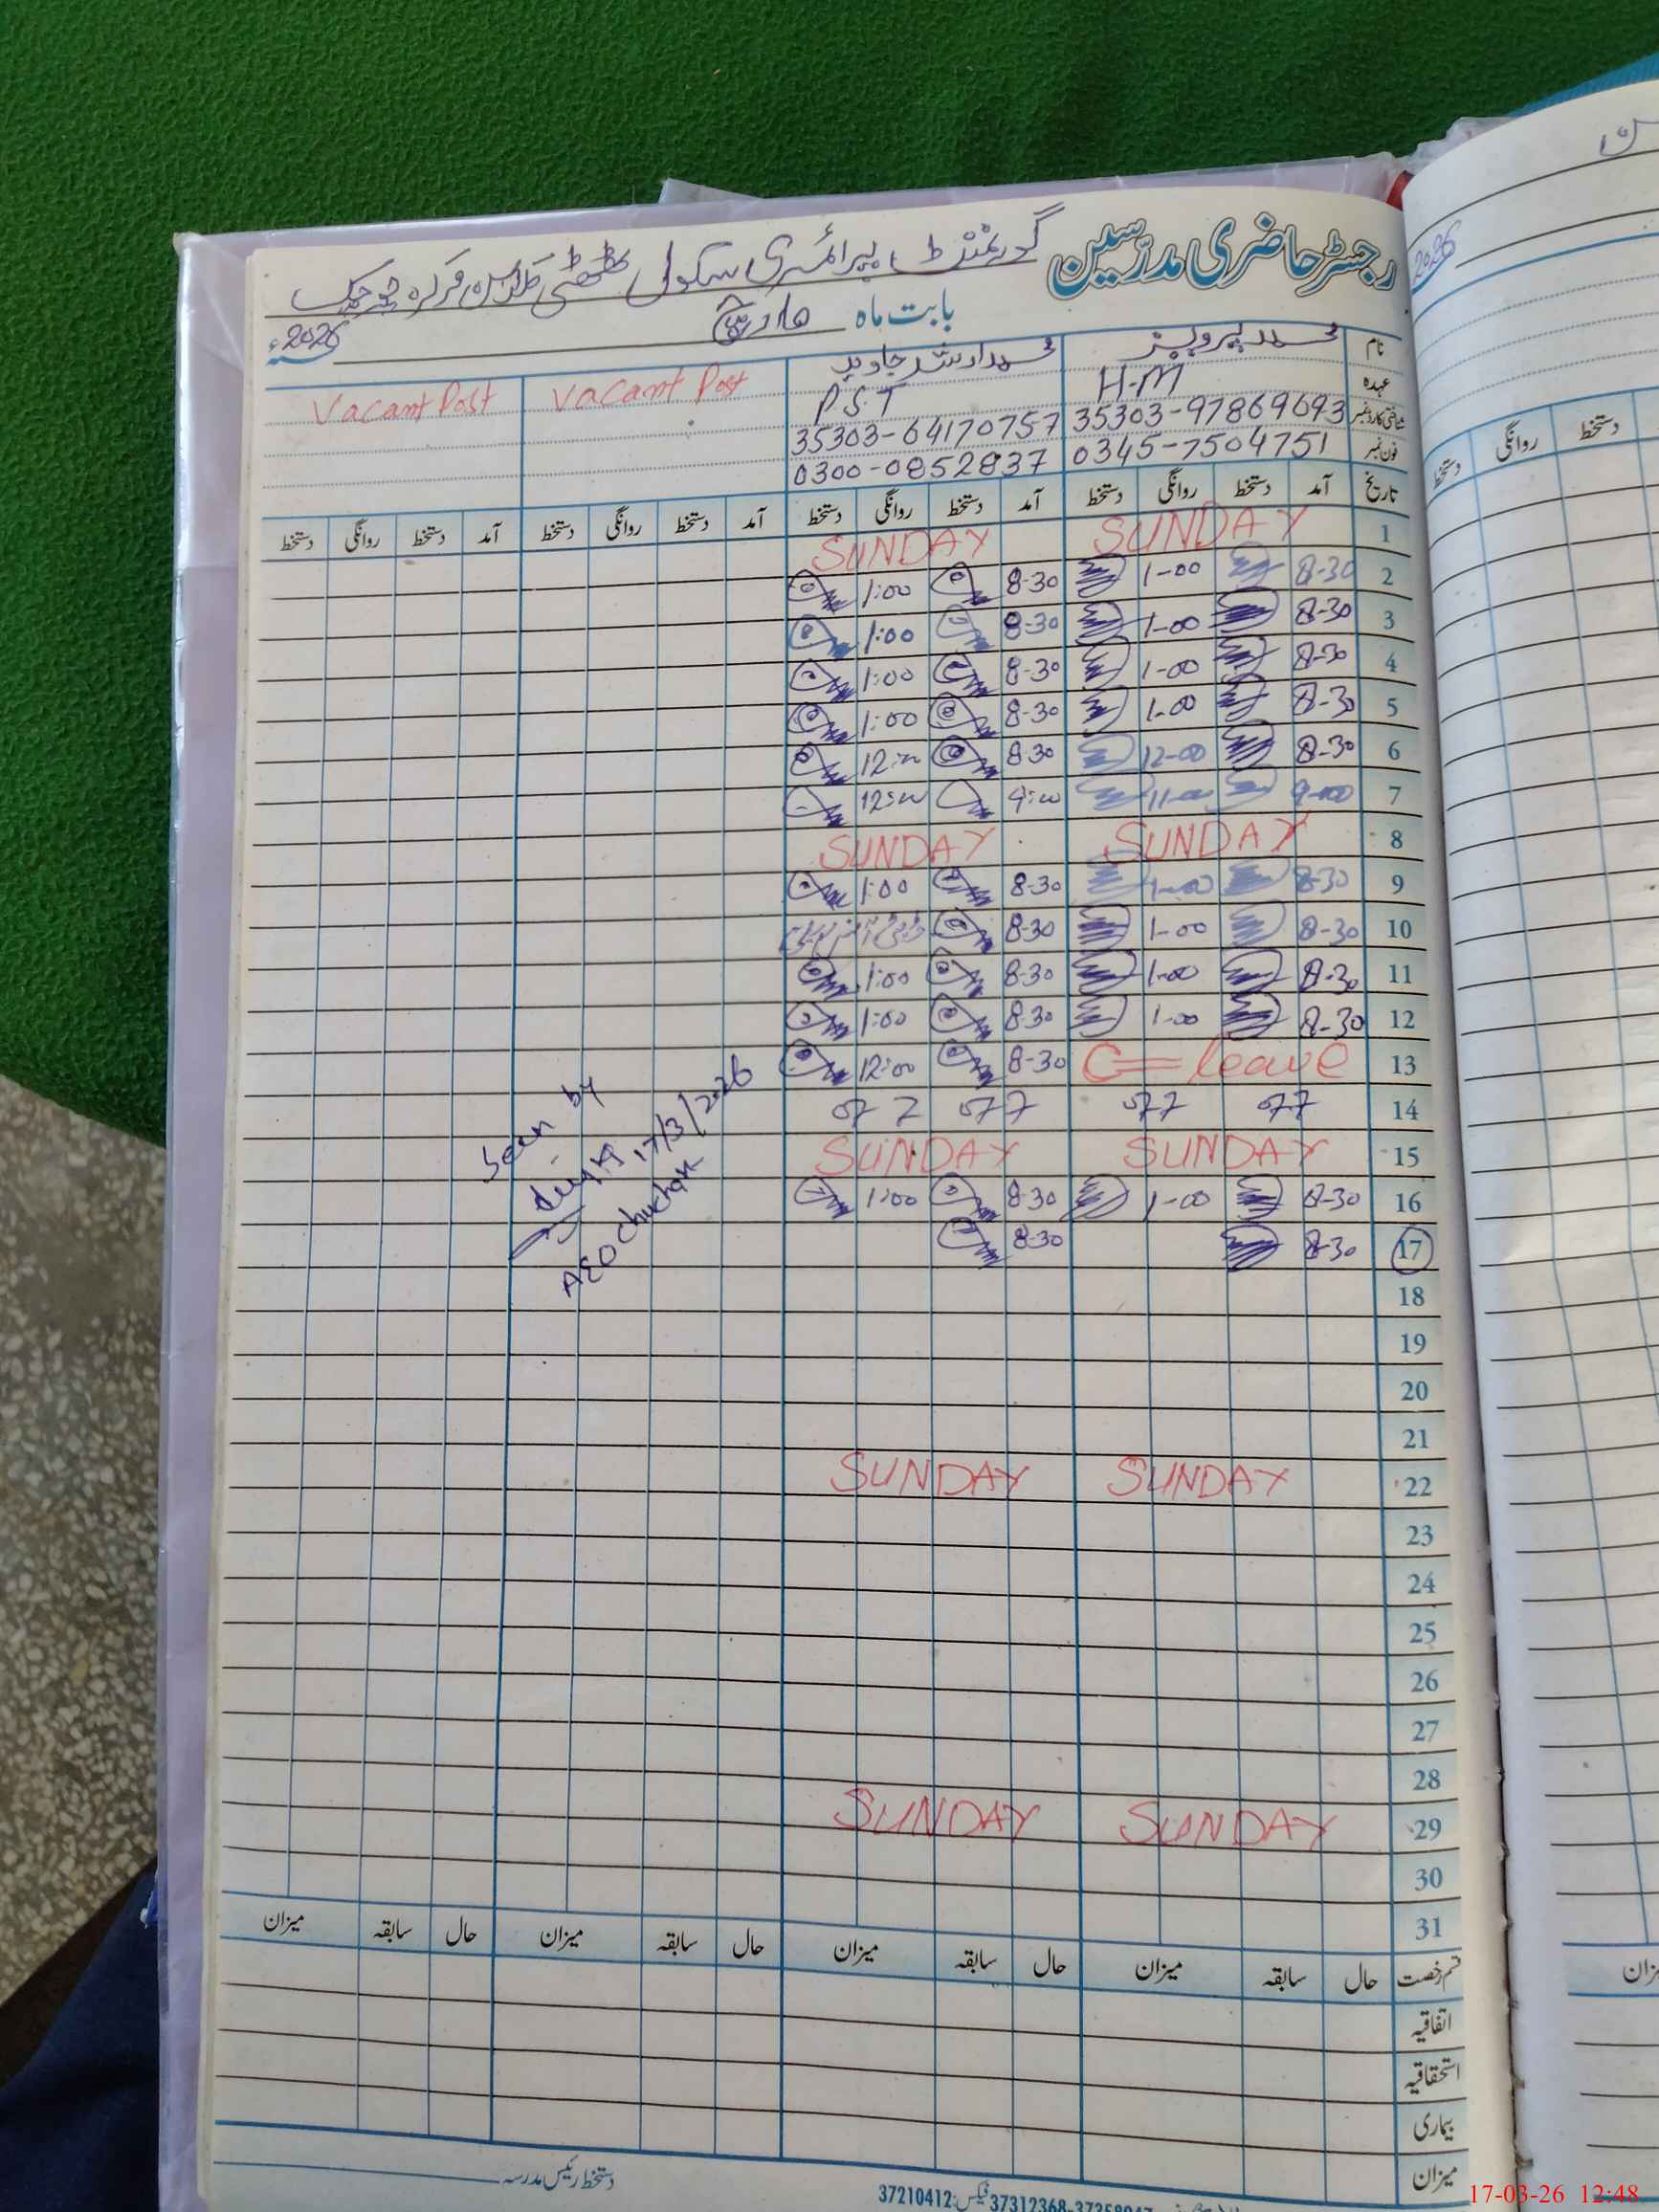 رجسٹر حاضری مدرسین گورنمنٹ پرائمری سکول
بابت ماہ مارچ 2026ء
نام محمد پرویز محمد ارشد جاوید
عہدہ H-M PST Vacant Post Vacant Post
شناختی کارڈ نمبر 35303-97869693 35303-64170757
فون نمبر 0345-7504751 0300-0852837
تاریخ آمد دستخط روانگی دستخط آمد دستخط روانگی دستخط آمد دستخط روانگی دستخط آمد دستخط روانگی دستخط
1 SUNDAY SUNDAY
2 8-30 1-00 8-30 1:00
3 8-30 1-00 8-30 1:00
4 8-30 1-00 8-30 1:00
5 8-30 1-00 8-30 1:00
6 8-30 12-00 8-30 12:00
7 9-00 11-00 9:00 12:00
8 SUNDAY SUNDAY
9 8-30 1-00 8-30 1:00
10 8-30 1-00 8-30
11 8-30 1-00 8-30 1:00
12 8-30 1-00 8-30 1:00
13 C= leave 8-30 12:00
14
15 SUNDAY SUNDAY
16 8-30 1-00 8-30 1:00
17 8-30 8-30
Seen by
17/3/2026
AEO Chuchak
18
19
20
21
22 SUNDAY SUNDAY
23
24
25
26
27
28
29 SUNDAY SUNDAY
30
31
قسم رخصت حال سابقہ میزان حال سابقہ میزان حال سابقہ میزان حال سابقہ میزان
اتفاقیہ
استحقاقیہ
بیماری
میزان
دستخط رئیس مدرسہ
37312368 فیکس:37210412
دستخط روانگی دستخط
2026
17-03-26 12:48